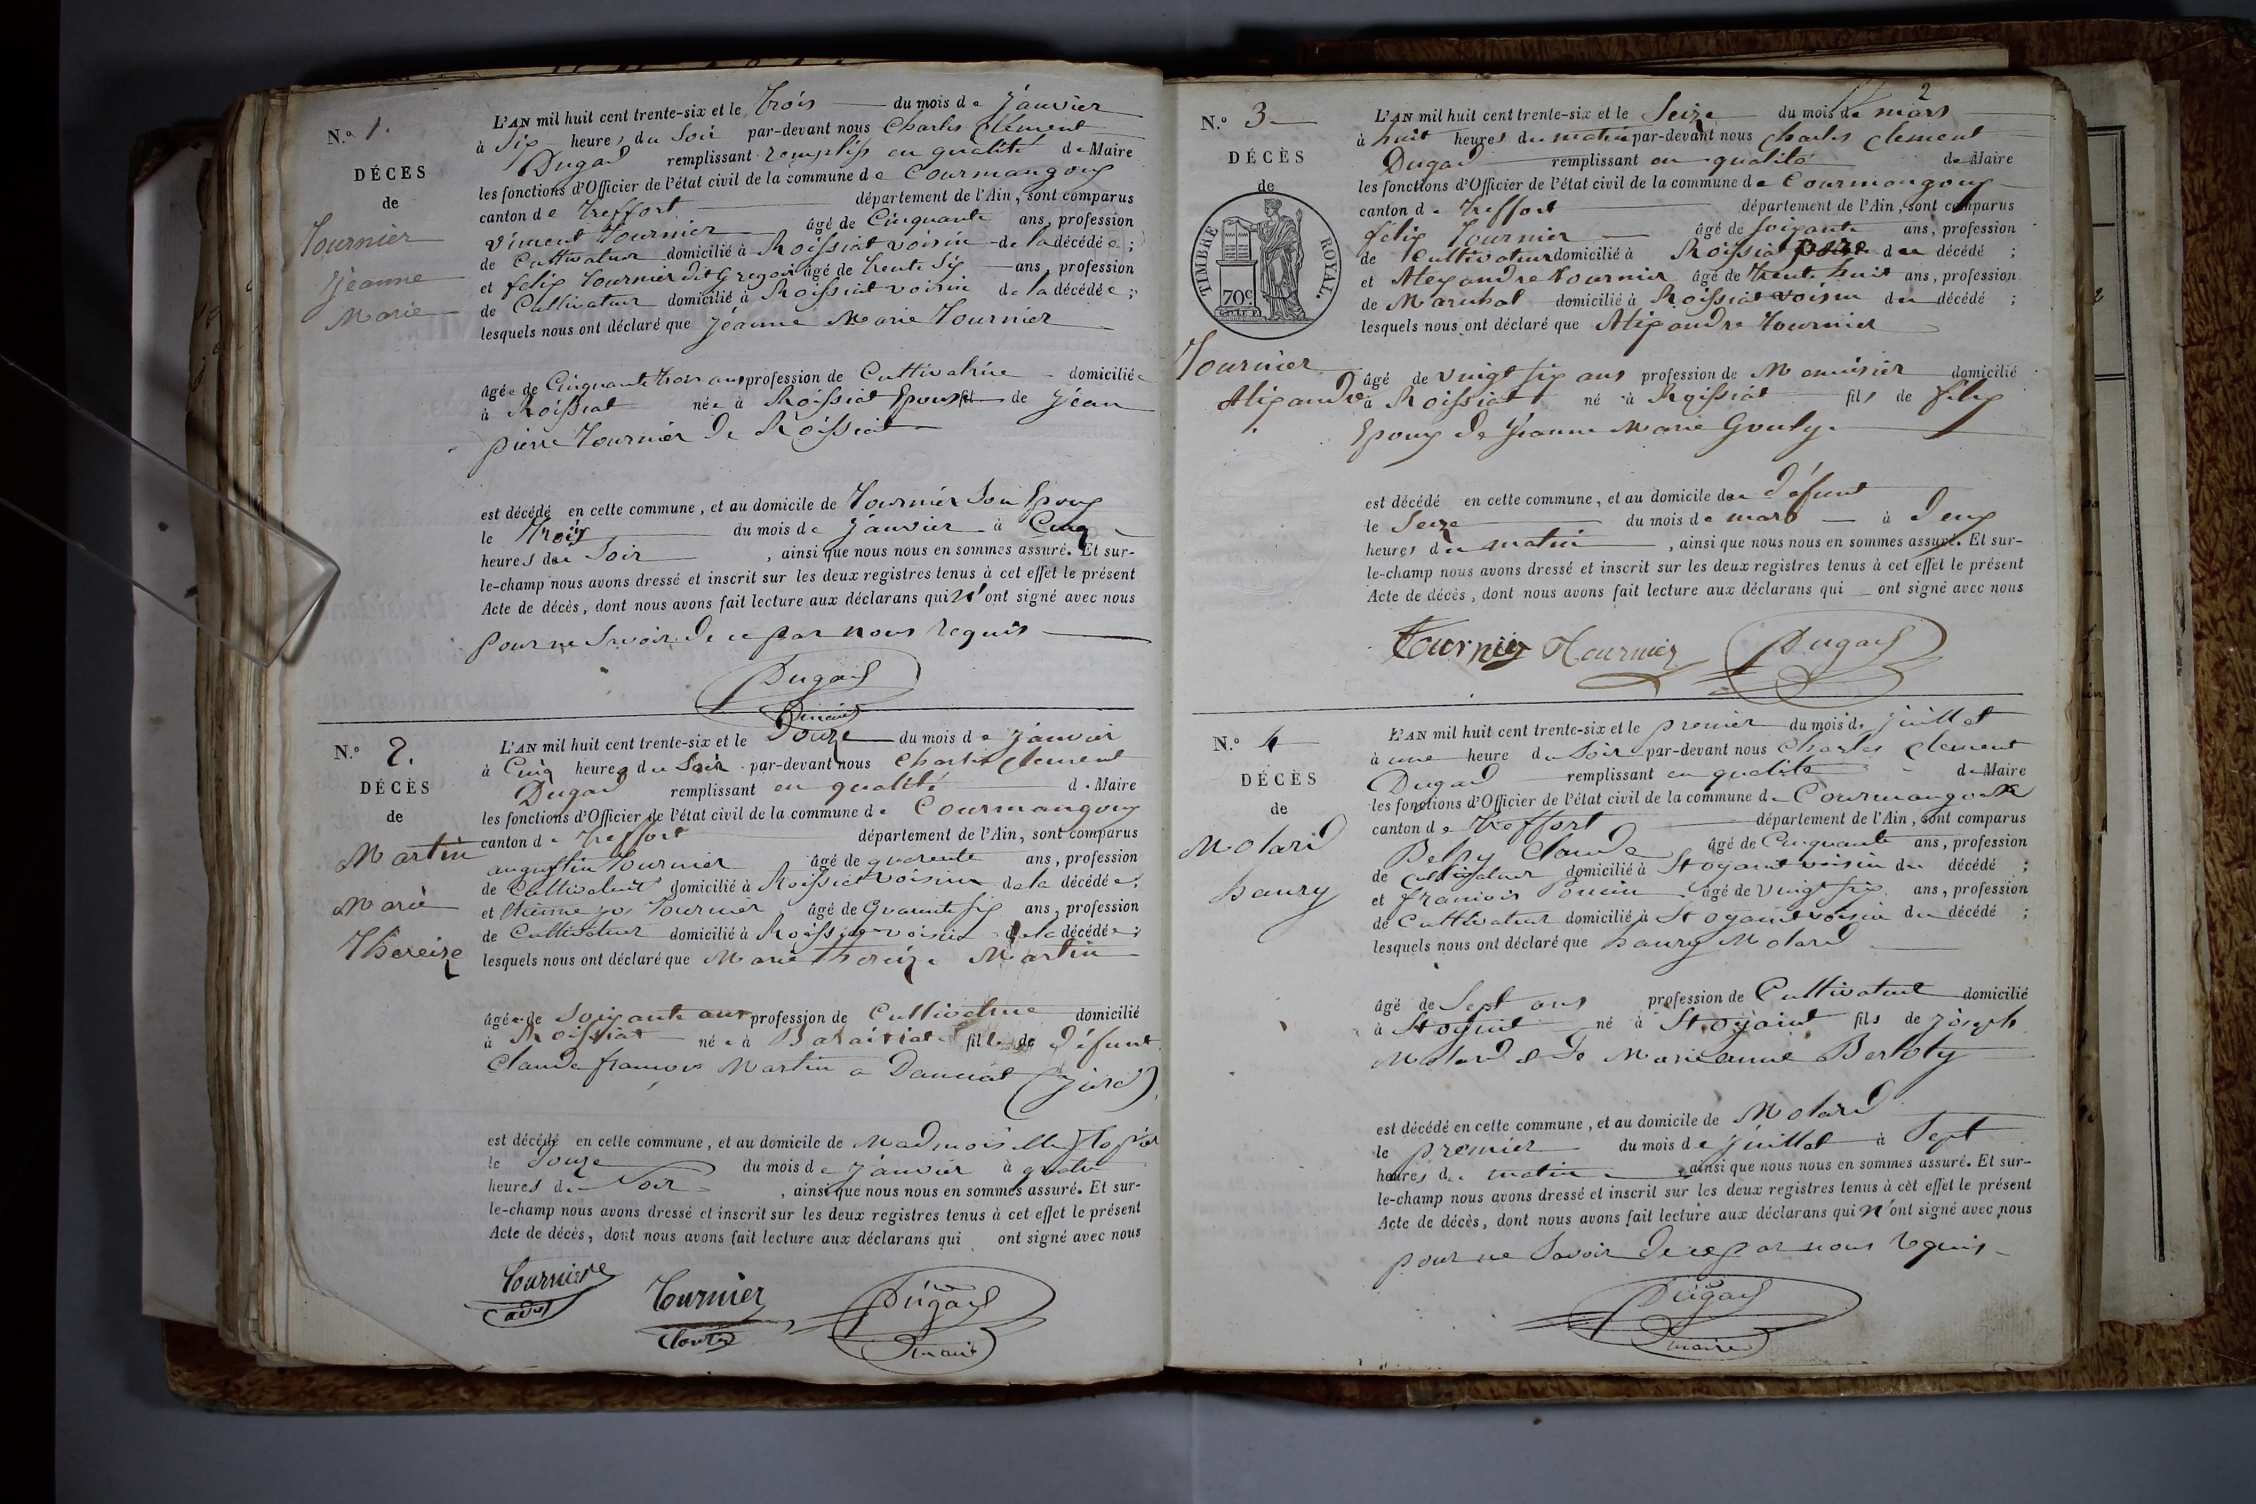 N.º 1.
DÉCÈS
de
Tournier
Jéanne
Marie
L'AN mil huit cent trente-six et le trois du mois de Janvier
à Six heures du Soir par-devant nous Charles Clément
Dugad remplissant remplis en qualité de Maire
les fonctions d'Officier de l'état civil de la commune de Courmangoux
canton de Treffort département de l'Ain, sont comparus
Vincent Tournier âgé de Cinquante ans, profession
de Cultivateur domicilié à Roissiat voisin de la décédée ;
et félix Tournier dit Gregoir âgé de trente Six ans, profession
de Cultivateur domicilié à Roissiat voisin de la décédée ;
lesquels nous ont déclaré que Jéanne Marie Tournier
âgée de Cinquante trois ans profession de Cultivatrice domiciliée
à Roissiat née à Roissiat Epouse de Jéan
pierre Tournier de Roissiat
est décédé en cette commune, et au domicile de Tournier Son Epoux
le trois du mois de Janvier à Cinq
heures du Soir , ainsi que nous nous en sommes assuré. Et sur-
le-champ nous avons dressé et inscrit sur les deux registres tenus à cet effet le présent
Acte de décès, dont nous avons fait lecture aux déclarans qui n'ont signé avec nous
pour ne Savoir de ce par nous requis
Dugad
maire
N.º 2.
DÉCÈS
de
Martin
Marie
Thereize
L'AN mil huit cent trente-six et le Douze du mois de Janvier
à Cinq heures du Soir par-devant nous Charles Clement
Dugad remplissant en qualité de Maire
les fonctions d'Officier de l'état civil de la commune de Courmangoux
canton de Treffort département de l'Ain, sont comparus
augustin Tournier âgé de quarente ans, profession
de Cultivateur domicilié à Roissiat voisin de la décédée ;
et Tournier âgé de Quarente six ans, profession
de Cultivateur domicilié à Roissiat voisin de la décédée ;
lesquels nous ont déclaré que Marie Thereize Martin
âgée de Soixante ans profession de Cultivatrice domicilié
à Roissiat née à fille de défunt
Claude françois Martin a (Jura)
est décédé en cette commune, et au domicile de
le Douze du mois de Janvier à quatre
heures du Soir , ainsi que nous nous en sommes assuré. Et sur-
le-champ nous avons dressé et inscrit sur les deux registres tenus à cet effet le présent
Acte de décès, dont nous avons fait lecture aux déclarans qui ont signé avec nous
Tournier
Tournier
Dugad
maire
2
N.º 3
DÉCÈS
de
TIMBRE ROYAL.
70c
Tournier
Aléxandre
L'AN mil huit cent trente-six et le Seize du mois de mars
à huit heures du matin par-devant nous Charles Clement
Dugad remplissant en qualité de Maire
les fonctions d'Officier de l'état civil de la commune de Courmangoux
canton de Treffort département de l'Ain, sont comparus
félix Tournier âgé de Soixante ans, profession
de Cultivateur domicilié à Roissiat père du décédé ;
et Alexandre Tournier âgé de trente huit ans, profession
de Marechal domicilié à Roissiat voisin du décédé ;
lesquels nous ont déclaré que Aléxandre Tournier
âgé de vingt six ans profession de Menuisier domicilié
à Roissiat né à Roissiat fils de félix
Epoux de Jéanne Marie
est décédé en cette commune, et au domicile du défunt
le Seize du mois de mars à deux
heures du matin , ainsi que nous nous en sommes assuré. Et sur-
le-champ nous avons dressé et inscrit sur les deux registres tenus à cet effet le présent
Acte de décès, dont nous avons fait lecture aux déclarans qui ont signé avec nous
Tournier Tournier Dugad
N.º 4
DÉCÈS
de
Molard
haury
L'AN mil huit cent trente-six et le premier du mois de Juillet
à une heure du Soir par-devant nous Charles Clement
Dugad remplissant en qualité de Maire
les fonctions d'Officier de l'état civil de la commune de Courmangoux
canton de Treffort département de l'Ain, sont comparus
Claude âgé de Cinquante ans, profession
de Cultivateur domicilié à St oyant voisin du décédé ;
et francois Poncin âgé de vingt six ans, profession
de Cultivateur domicilié à St oyant voisin du décédé ;
lesquels nous ont déclaré que haury Molard
âgé de Sept ans profession de Cultivateur domicilié
à St oyant né à St oyant fils de Joseph
Molard & De Marieanne
est décédé en cette commune, et au domicile de Molard
le premier du mois de Juillet à Sept
heures du matin , ainsi que nous nous en sommes assuré. Et sur-
le-champ nous avons dressé et inscrit sur les deux registres tenus à cet effet le présent
Acte de décès, dont nous avons fait lecture aux déclarans qui n'ont signé avec nous
pour ne Savoir de ce par nous requis
Dugad
maire